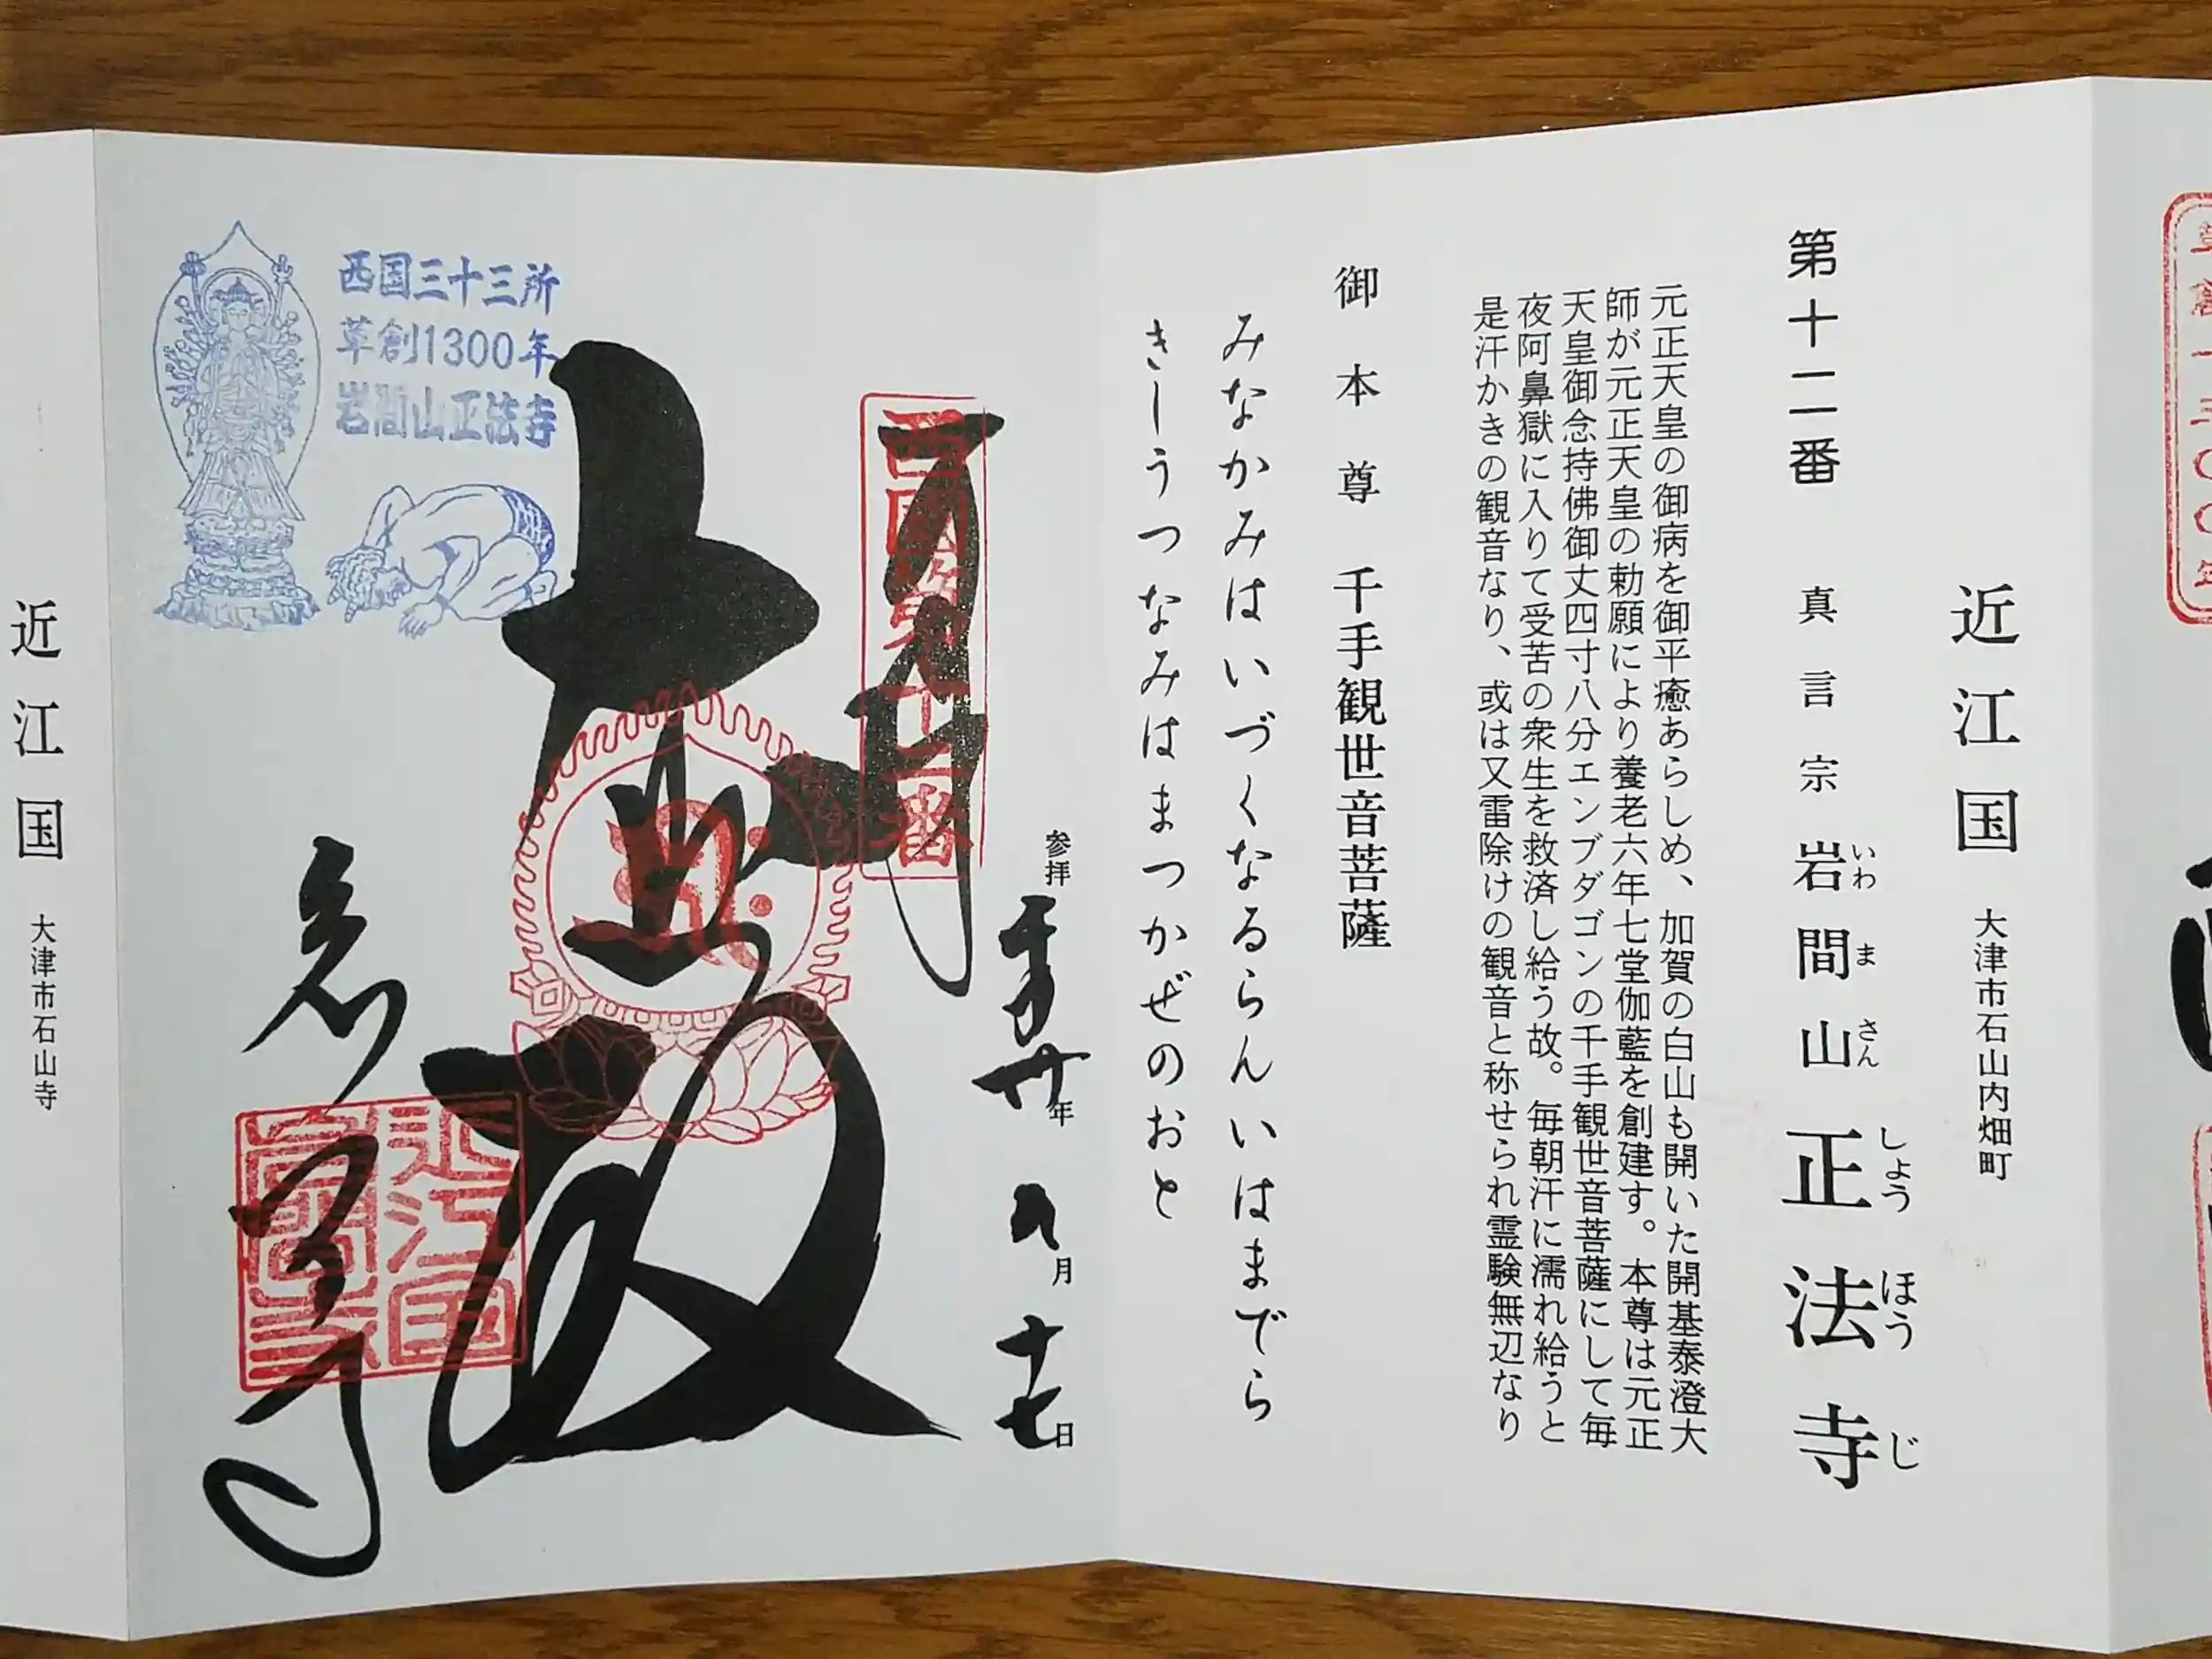 近江国 大津市石山内畑町
第十二番 真言宗 岩間山 正法寺
いわ ま さん しょう ほう じ
元正天皇の御病を御平癒あらしめ、加賀の白山も開いた開基泰澄大
師が元正天皇の勅願により養老六年七堂伽藍を創建す。本尊は元正
天皇御念持佛御丈四寸八分エンブダゴンの千手観世音菩薩にして毎
夜阿鼻獄に入りて受苦の衆生を救済し給う故。毎朝汗に濡れ給うと
是汗かきの観音なり、或は又雷除けの観音と称せられ霊験無辺なり
御本尊 千手観世音菩薩
みなかみはいづくなるらんいはまでら
きしうつなみはまつかぜのおと
参拝 年 九月 十七日
西國第十二番
西国三十三所
草創1300年
岩間山正法寺
近江国 大津市石山寺